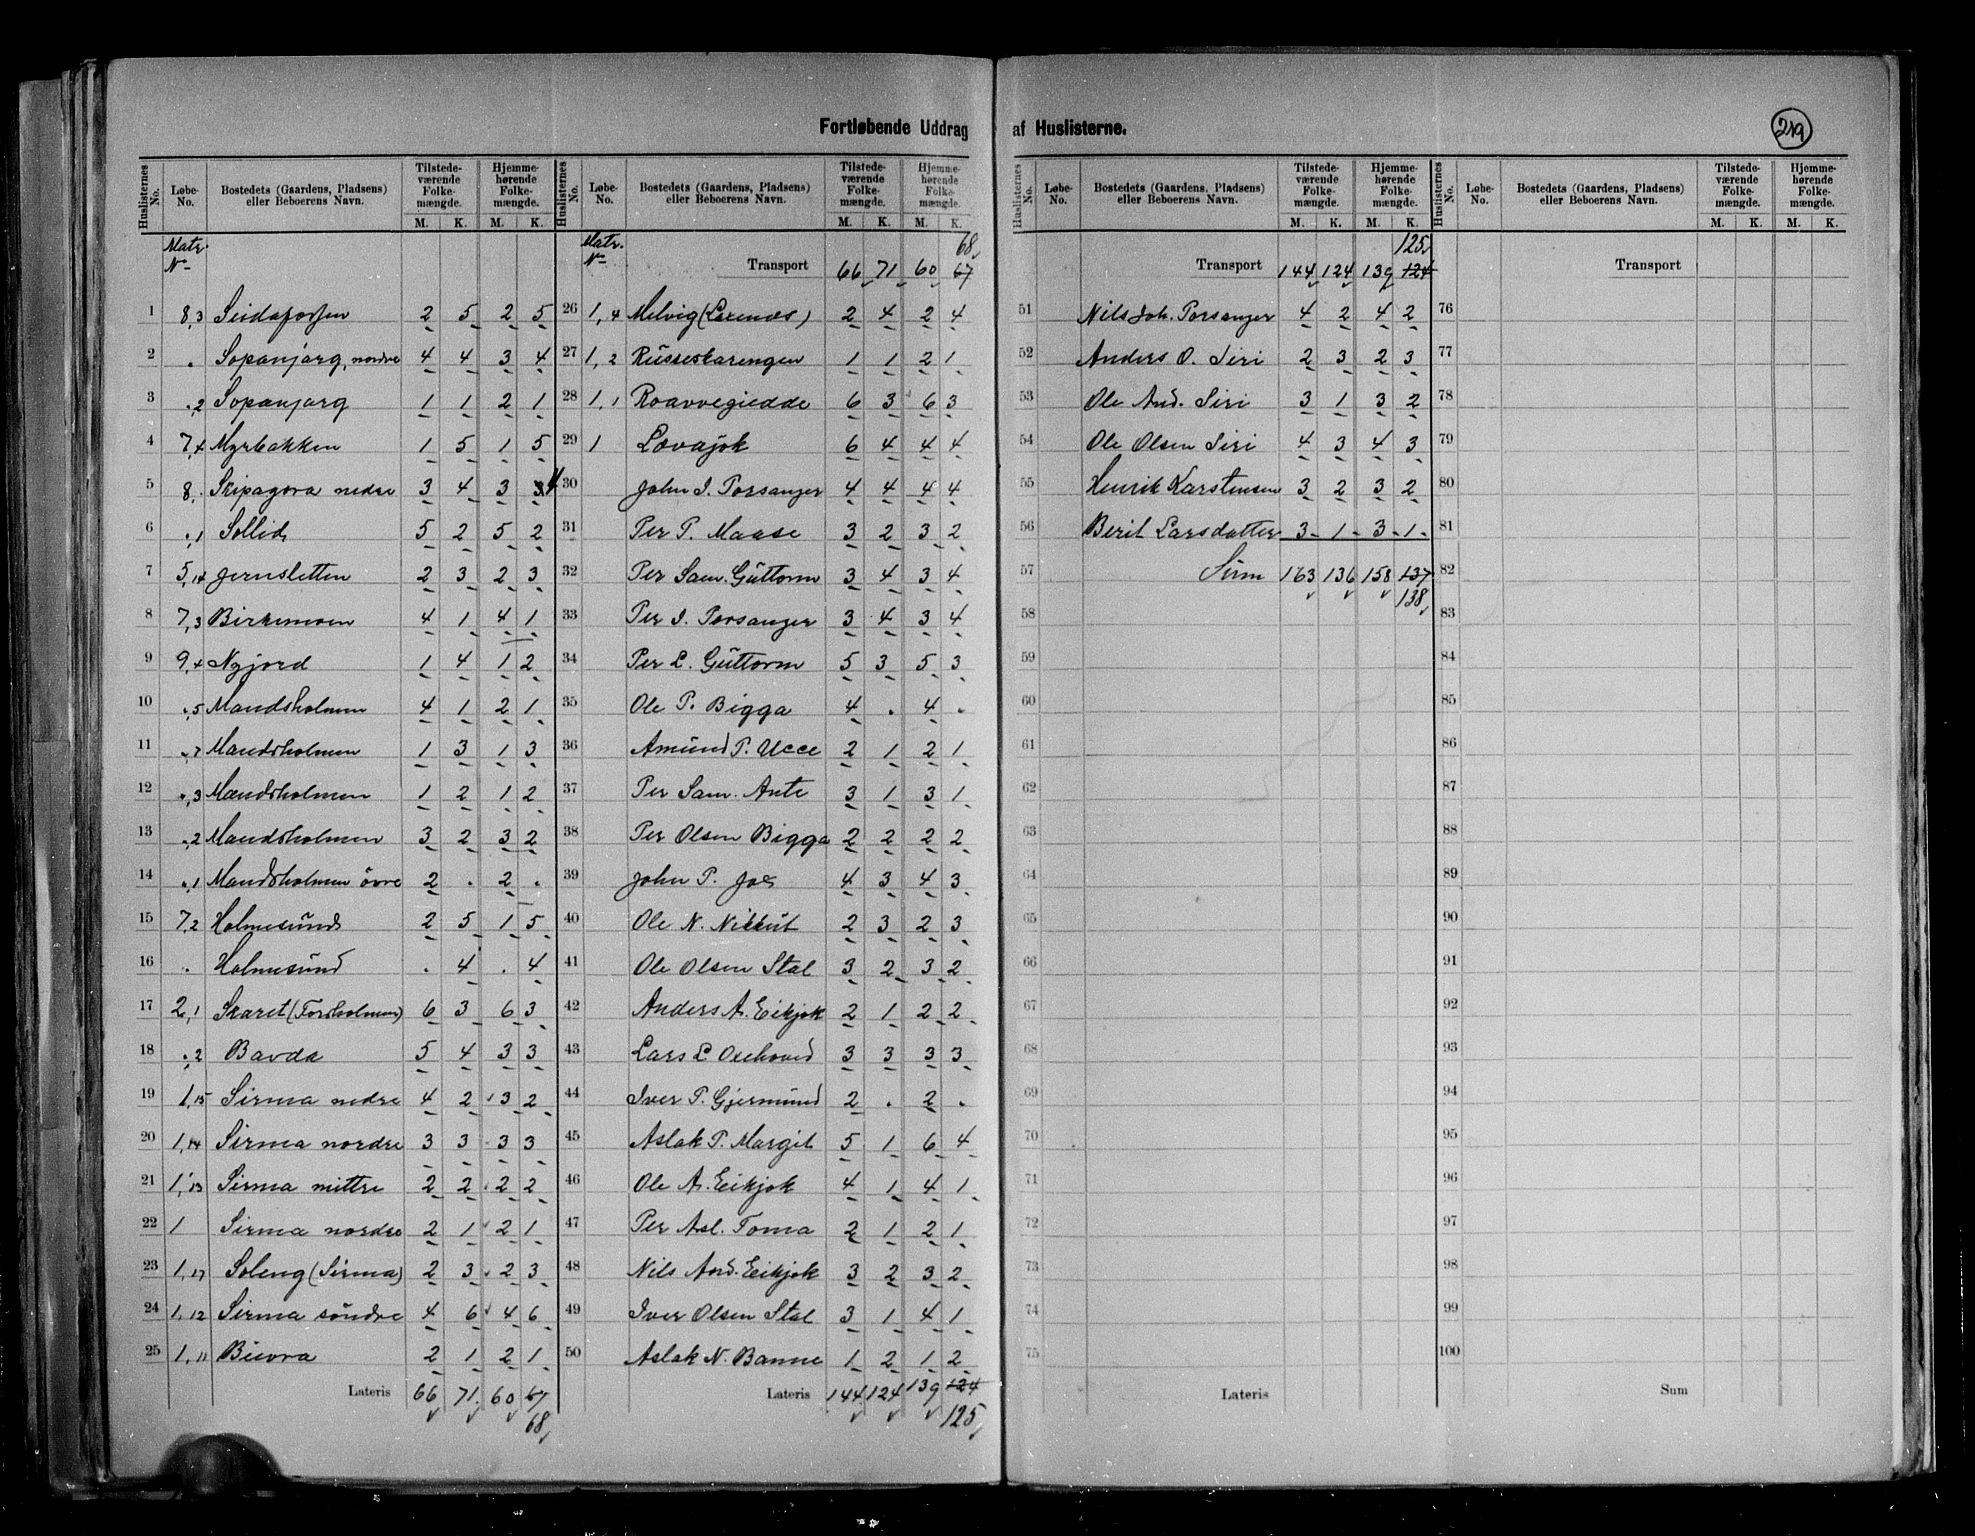 Fortløbende Uddrag af Huslisterne.
219
Huslisternes No. | Løbe-No. | Bostedets (Gaardens, Pladsens) eller Beboerens Navn. | Tilstedeværende Folkemængde. M. K. | Hjemmehørende Folkemængde. M. K.
Matr. No
1 8,3 Seidaforssen 2 5 2 5
2 " Sopanjarg, nordre 4 4 3 4
3 ",2 Sopanjarg 1 1 2 1
4 7,4 Myrbakken 1 5 1 5
5 8," Skipagora nedre 3 4 3 3 4
6 ",1 Sollid 5 2 5 2
7 5,14 Jernsletten 2 3 2 3
8 7,3 Birkemoen 4 1 4 1
9 9,4 Nyjord 1 4 1 2
10 ",5 Mandsholmen 4 1 2 1
11 ",7 Mandsholmen 1 3 1 3
12 ",3 Mandsholmen 1 2 1 2
13 ",2 Mandsholmen 3 2 3 2
14 ",1 Mandsholmen övre 2 . 2 .
15 7,2 Holmesund 2 5 1 5
16 " Holmesund . 4 . 4
17 2,1 Skaret (Forsholmen) 6 3 6 3
18 ",2 Bavda 5 4 3 3
19 1,15 Sirma nedre 4 2 3 2
20 1,14 Sirma nordre 3 3 3 3
21 1,13 Sirma mittre 2 2 2 2
22 1 Sirma nordre 2 1 2 1
23 1,17 Soleng (Sirma) 2 3 2 3
24 1,12 Sirma söndre 4 6 4 6
25 1,11 Bievra 2 1 2 1
Lateris 66 71 60 67
68
Matr. No
68
Transport 66 71 60 67
26 1,4 Melvig (Laxenæs) 2 4 2 4
27 1,2 Russeskarengen 1 1 2 1
28 1,1 Roavvegiedde 6 3 6 3
29 1 Lævajok 6 4 4 4
30 John I. Porsanger 4 4 4 4
31 Per P. Maase 3 2 3 2
32 Per Sam. Guttorm 3 4 3 4
33 Per I. Porsanger 3 4 3 4
34 Per L. Guttorm 5 3 5 3
35 Ole P. Bigga 4 . 4 .
36 Amund P. Ucce 2 1 2 1
37 Per Sam. Ante 3 1 3 1
38 Per Olsen Bigga 2 2 2 2
39 John P. Joks 4 3 4 3
40 Ole N. Nikkut 2 3 2 3
41 Ole Olsen Stal 3 2 3 2
42 Anders A. Eikjok 2 1 2 2
43 Lars L Oxehoved 3 3 3 3
44 Iver P. Gjermund 2 . 2 .
45 Aslak P. Margit 5 1 6 4
46 Ole A. Eikjok 4 1 4 1
47 Per Asl. Toma 2 1 2 1
48 Nils And. Eikjok 3 2 3 2
49 Iver Olsen Stal 3 1 4 1
50 Aslak N. Banne 1 2 1 2
Lateris 144 124 139 124
125
Huslisternes No. | Løbe-No. | Bostedets (Gaardens, Pladsens) eller Beboerens Navn. | Tilstedeværende Folkemængde. M. K. | Hjemmehørende Folkemængde. M. K.
125
Transport 144 124 139 124
51 Nils Joh. Porsanger 4 2 4 2
52 Anders O. Siri 2 3 2 3
53 Ole And. Siri 3 1 3 2
54 Ole Olsen Siri 4 3 4 3
55 Henrik Karstensen 3 2 3 2
56 Berit Larsdatter 3 1 3 1
57 Sum 163 136 158 137
138
58
59
60
61
62
63
64
65
66
67
68
69
70
71
72
73
74
75
Lateris
Transport
76
77
78
79
80
81
82
83
84
85
86
87
88
89
90
91
92
93
94
95
96
97
98
99
100
Sum